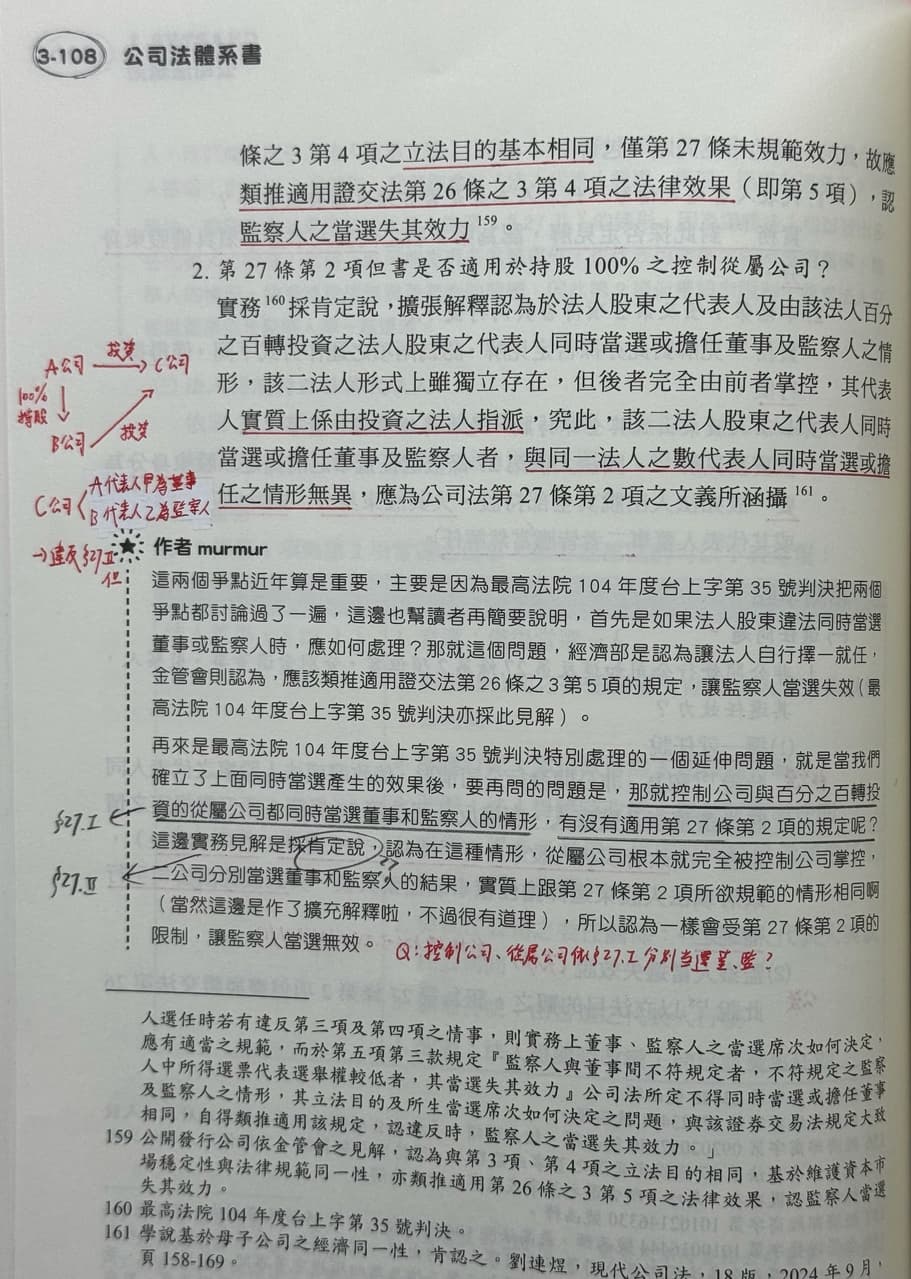 3-108 公司法體系書
條之3第4項之立法目的基本相同，僅第27條未規範效力，故應
類推適用證交法第26條之3第4項之法律效果（即第5項），認
監察人之當選失其效力159。
2. 第27條第2項但書是否適用於持股100%之控制從屬公司？
實務160採肯定說，擴張解釋認為於法人股東之代表人及由該法人百分
之百轉投資之法人股東之代表人同時當選或擔任董事及監察人之情
形，該二法人形式上雖獨立存在，但後者完全由前者掌控，其代表
人實質上係由投資之法人指派，究此，該二法人股東之代表人同時
當選或擔任董事及監察人者，與同一法人之數代表人同時當選或擔
任之情形無異，應為公司法第27條第2項之文義所涵攝161。
A公司 投資 C公司
100%
持股
B公司 投資
C公司
A代表人甲為董事
B代表人乙為監察人
→違反§27.Ⅱ
但
作者murmur
這兩個爭點近年算是重要，主要是因為最高法院104年度台上字第35號判決把兩個
爭點都討論過了一遍，這邊也幫讀者再簡要說明，首先是如果法人股東違法同時當選
董事或監察人時，應如何處理？那就這個問題，經濟部是認為讓法人自行擇一就任，
金管會則認為，應該類推適用證交法第26條之3第5項的規定，讓監察人當選失效（最
高法院104年度台上字第35號判決亦採此見解）。
再來是最高法院104年度台上字第35號判決特別處理的一個延伸問題，就是當我們
確立了上面同時當選產生的效果後，要再問的問題是，那就控制公司與百分之百轉投
資的從屬公司都同時當選董事和監察人的情形，有沒有適用第27條第2項的規定呢？
這邊實務見解是採肯定說，認為在這種情形，從屬公司根本就完全被控制公司掌控，
二公司分別當選董事和監察人的結果，實質上跟第27條第2項所欲規範的情形相同啊
（當然這邊是作了擴充解釋啦，不過很有道理），所以認為一樣會受第27條第2項的
限制，讓監察人當選無效。
§27.Ⅰ
§27.Ⅱ
Q：控制公司、從屬公司依§27.Ⅰ分別當選董、監？
人選任時若有違反第三項及第四項之情事，則實務上董事、監察人之當選席次如何決定，
應有適當之規範，而於第五項第三款規定『監察人與董事間不符規定者，不符規定之監察
人中所得選票代表選舉權較低者，其當選失其效力』公司法所定不得同時當選或擔任董事
及監察人之情形，其立法目的及所生當選席次如何決定之問題，與該證券交易法規定大致
相同，自得類推適用該規定，認違反時，監察人之當選失其效力。」
159 公開發行公司依金管會之見解，認為與第3項、第4項之立法目的相同，基於維護資本市
場穩定性與法律規範同一性，亦類推適用第26條之3第5項之法律效果，認監察人當選
失其效力。
160 最高法院104年度台上字第35號判決。
161 學說基於母子公司之經濟同一性，肯認之。劉連煜，現代公司法，18版，2024年9月，
頁158-169。